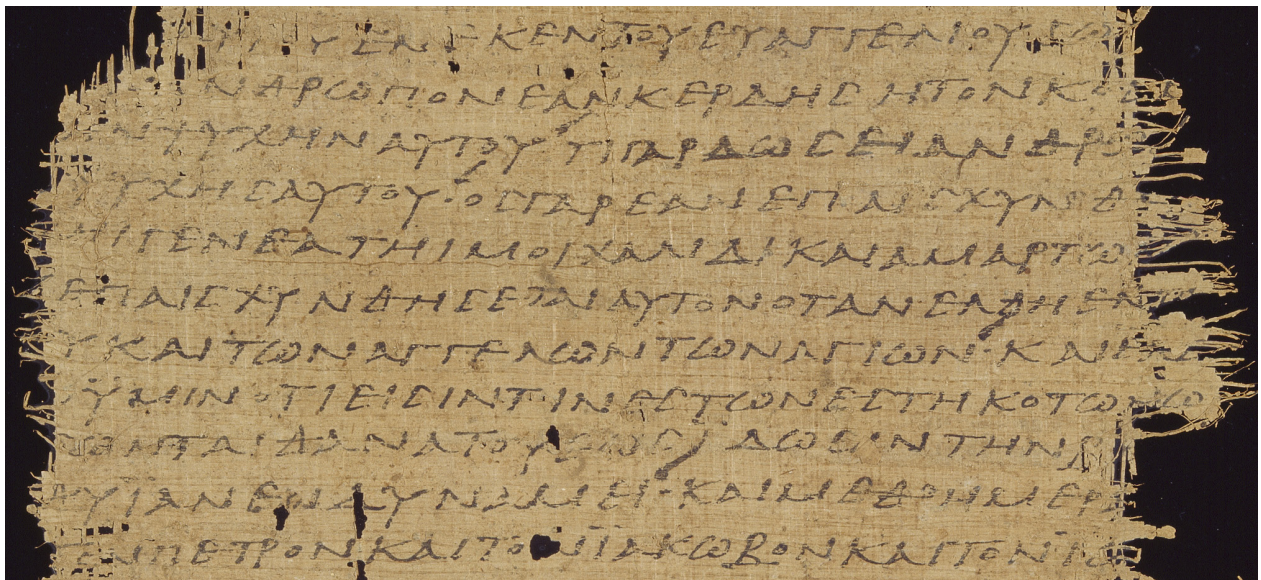 ΕΝΕΚΕΝΤΟΥΕΥΑΓΓΕΛΙΟΥϹΩ
ΝΘΡΩΠΟΝΕΑΝΚΕΡΔΗϹΗΤΟΝΚΟϹ
ΝΨΥΧΗΝΑΥΤΟΥΤΙΓΑΡΔΩϹΕΙΑΝΘΡΩ
ΥΧΗϹΕΑΥΤΟΥ·ΟϹΓΑΡΕΑΝΕΠΑΙϹΧΥΝΘ
ΗΙΓΕΝΕΑΤΗΙΜΟΙΧΑΛΙΔΙΚΑΙΑΜΑΡΤΩ
ΕΠΑΙϹΧΥΝΘΗϹΕΤΑΙΑΥΤΟΝΟΤΑΝΕΛΘΗΕΝ
ΥΚΑΙΤΩΝΑΓΓΕΛΩΝΤΩΝΑΓΙΩΝ·ΚΑΙΕΛΕ
ΫΜΙΝΟΤΙΕΙϹΙΝΤΙΝΕϹΤΩΝΕϹΤΗΚΟΤΩΝΩ
ΩΝΤΑΙΘΑΝΑΤΟΥΕΩϹΙΔΩϹΙΝΤΗΝΒ
ΥΙΑΝΕΝΔΥΝΑΜΕΙ·ΚΑΙΜΕΘΗΜΕΡΑ
ΤΟΝΠΕΤΡΟΝΚΑΙΤΟΝΪΑΚΩΒΟΝΚΑΙΤΟΝΪΩ